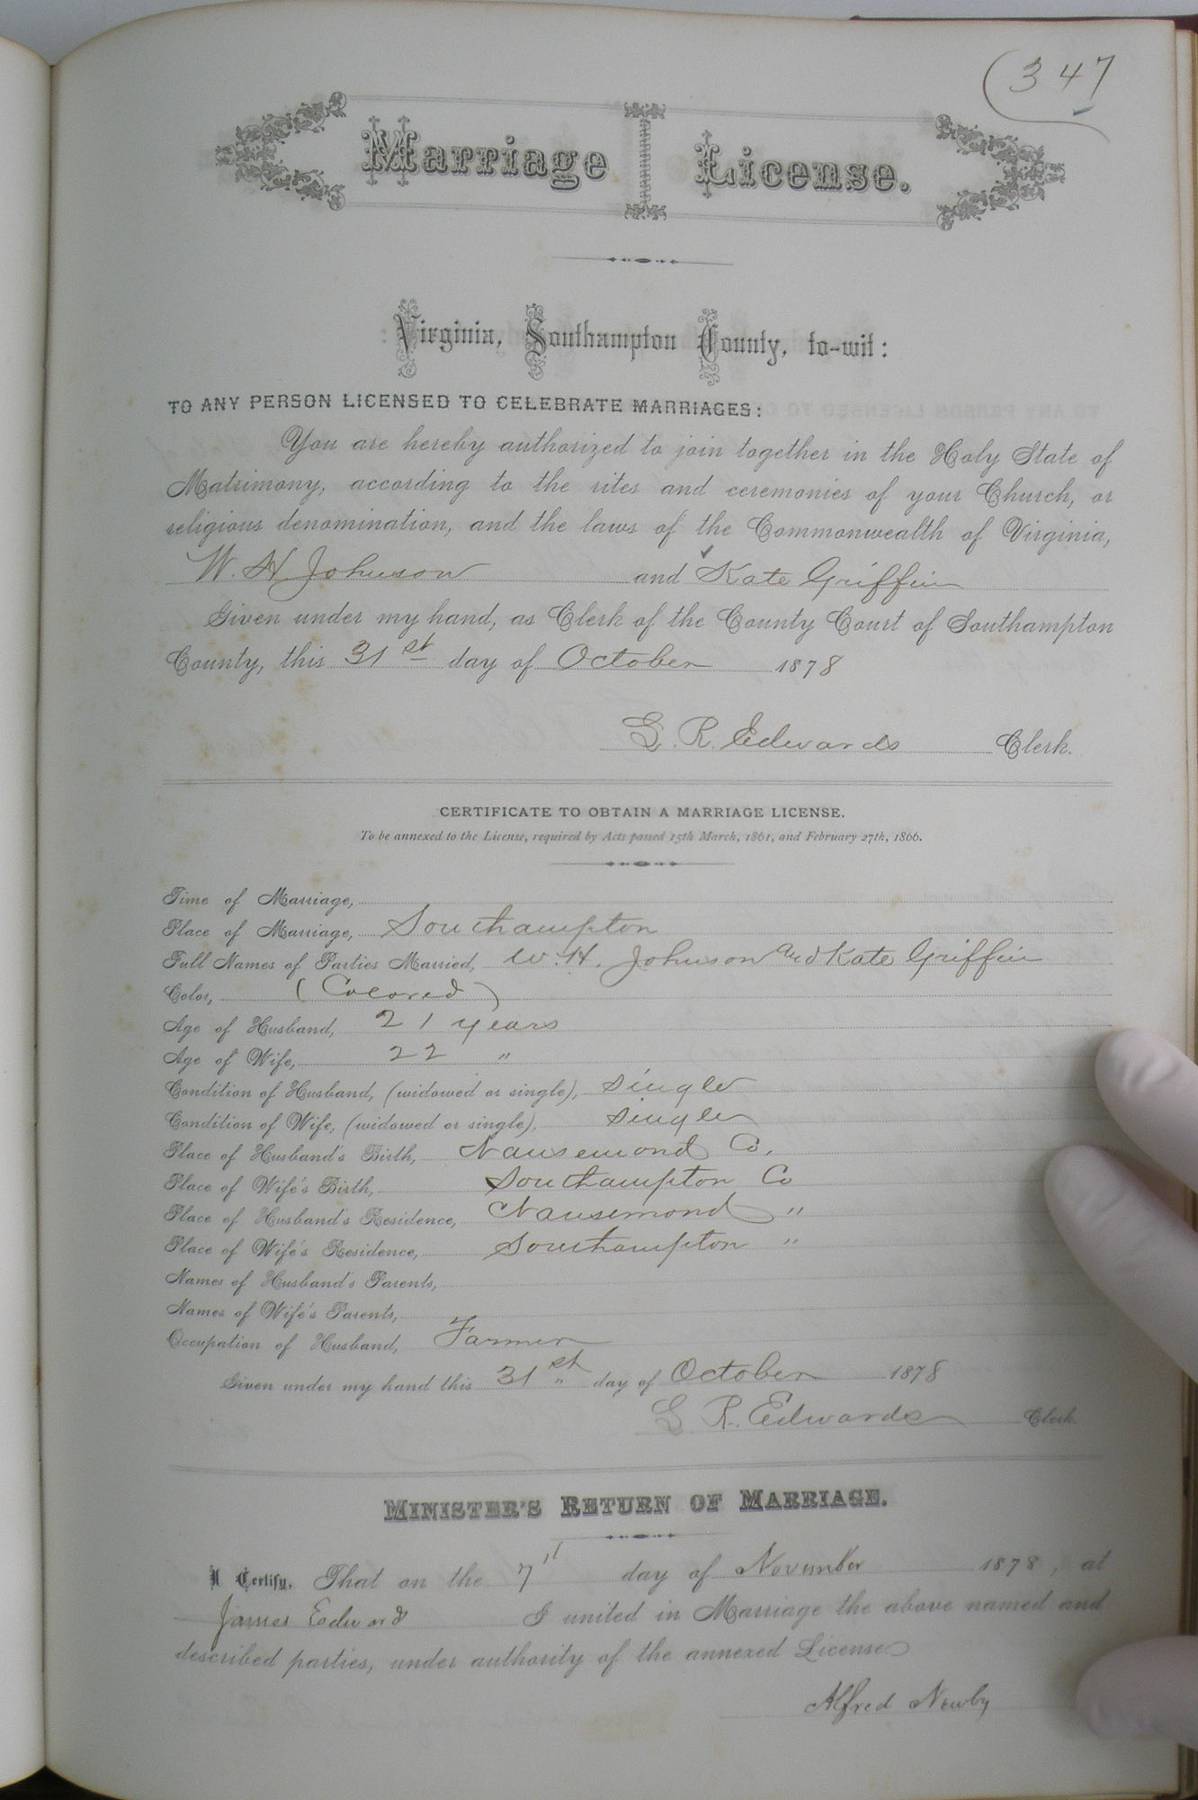 (347
Marriage License.
Virginia, Southampton County, to-wit:
TO ANY PERSON LICENSED TO CELEBRATE MARRIAGES:
You are hereby authorized to join together in the Holy State of
Matrimony, according to the rites and ceremonies of your Church, or
religious denomination, and the laws of the Commonwealth of Virginia,
W. H Johnson and Kate Griffin
Given under my hand, as Clerk of the County Court of Southampton
County, this 31st day of October 1878
L. R. Edwards Clerk.
CERTIFICATE TO OBTAIN A MARRIAGE LICENSE.
To be annexed to the License, required by Acts passed 15th March, 1861, and February 27th, 1866.
Time of Marriage,
Place of Marriage, Southampton
Full Names of Parties Married, W. H. Johnson and Kate Griffin
Color, (Colored)
Age of Husband, 21 years
Age of Wife, 22 "
Condition of Husband, (widowed or single), single
Condition of Wife, (widowed or single), single
Place of Husband's Birth, Nansemond Co.
Place of Wife's Birth, Southampton Co
Place of Husband's Residence, Nansemond "
Place of Wife's Residence, Southampton "
Names of Husband's Parents,
Names of Wife's Parents,
Occupation of Husband, Farmer
Given under my hand this 31st day of October 1878
L R. Edwards Clerk.
MINISTER'S RETURN OF MARRIAGE.
I Certify, That on the 7 day of November 1878, at
James Edwards I united in Marriage the above named and
described parties, under authority of the annexed License
Alfred Newby